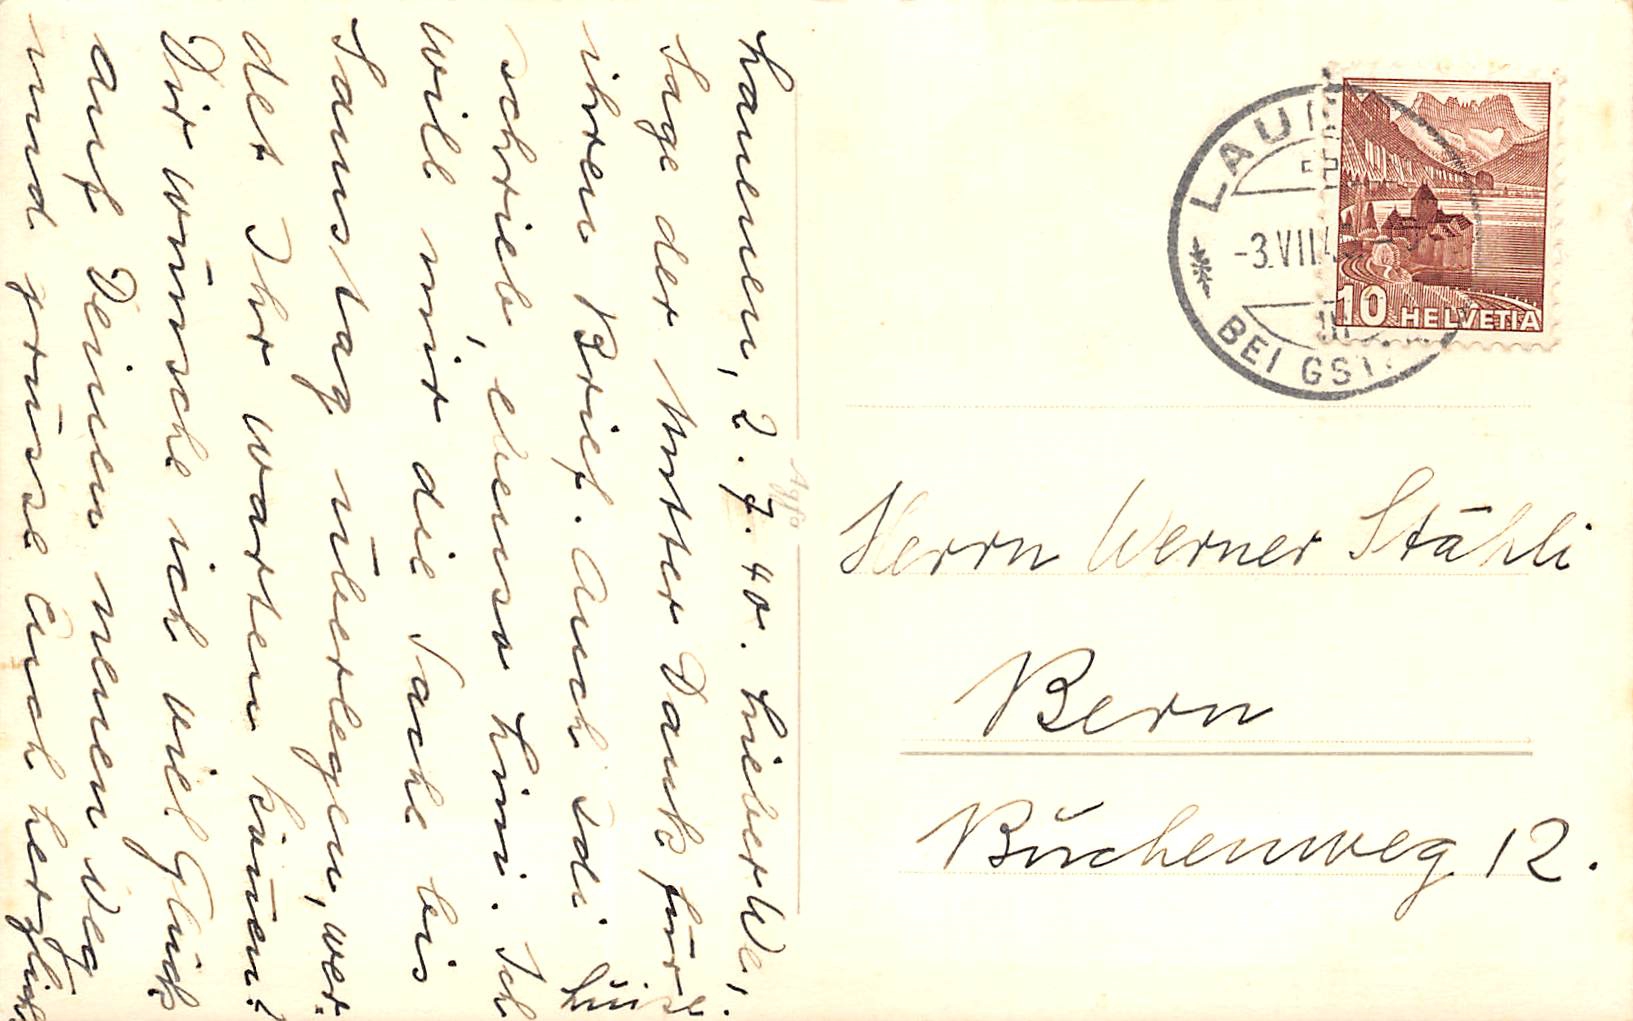 Lauenen, 2.7.40. Lieber We.,
sage der Mutter Dank für
ihren Brief. Auch Edi
schrieb, ebenso Lini. Ich
will mir die Sache bis
Samstag überlegen, wer-
det Ihr warten können?
Dir wünsche ich viel Glück
auf Deinem neuen Weg
und grüsse Euch herzlich
Luise.
Agfa
-3.VII.4
BEI GST
10 HELVETIA
Herrn Werner Stähli
Bern
Buchenweg 12.